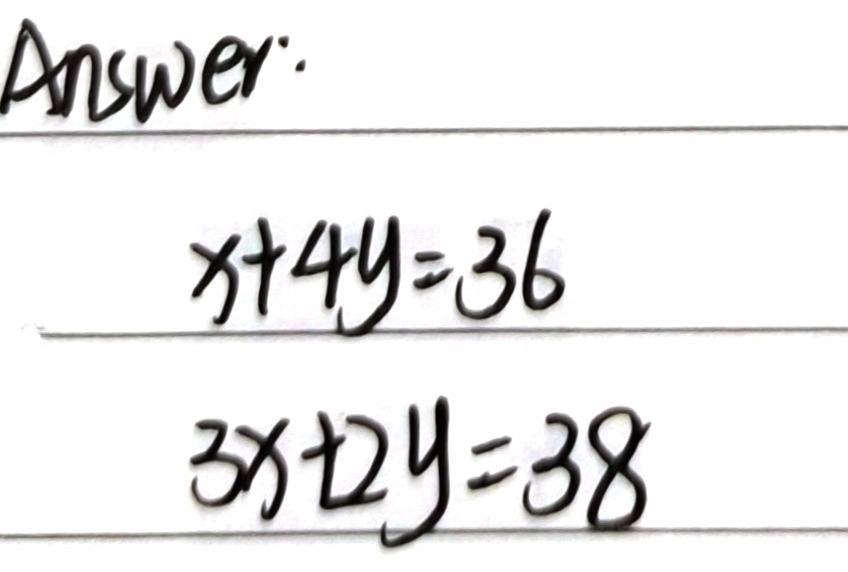 Answer:
x+4y=36
3x+2y=38